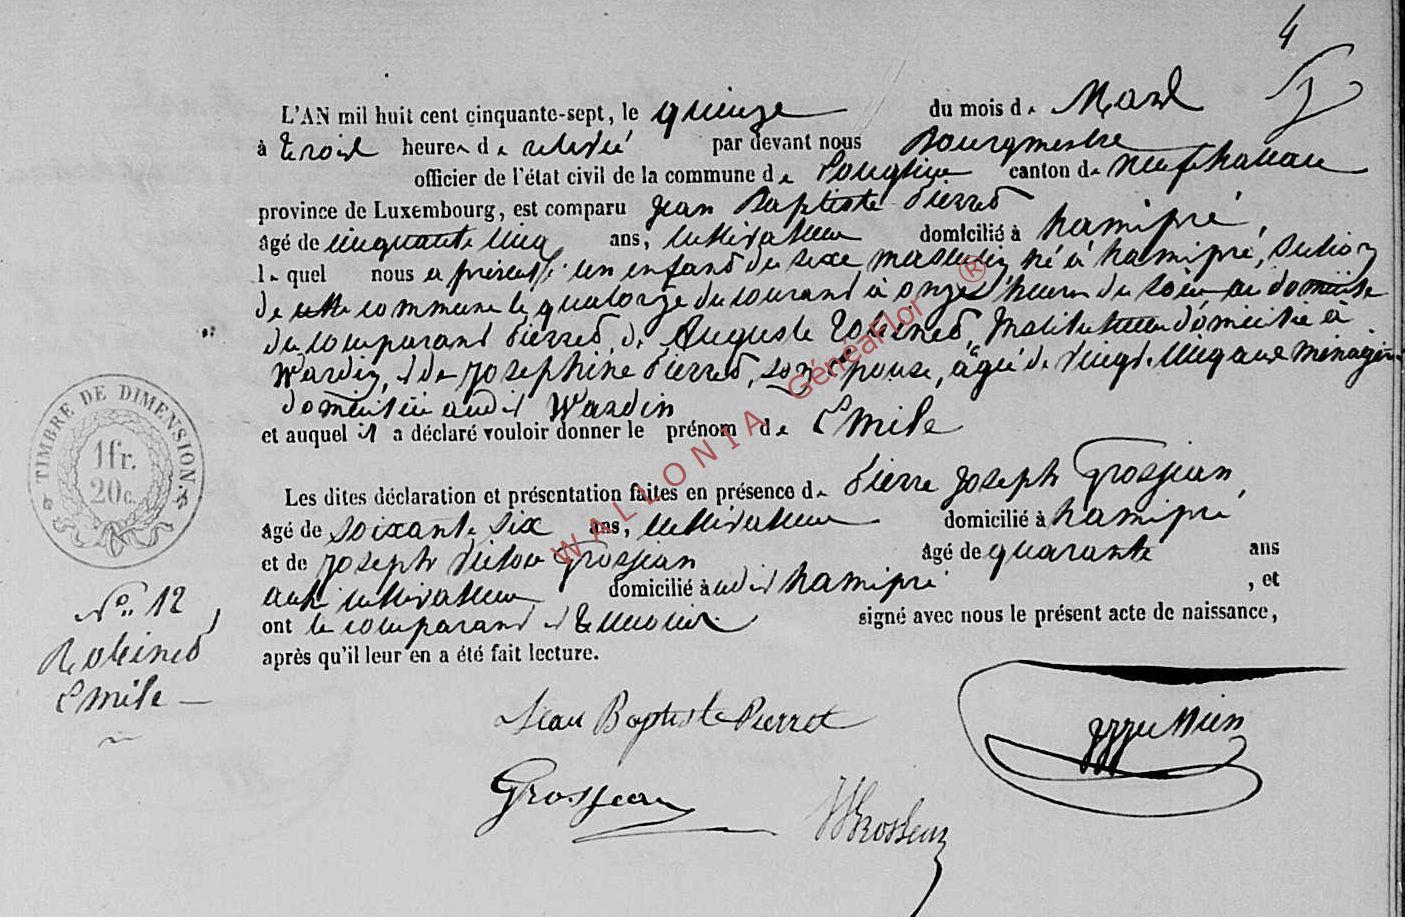 4
L'AN mil huit cent cinquante-sept, le quinze du mois de Mars
à trois heures de relevée par devant nous Bourgmestre
officier de l'état civil de la commune de Longlier canton de Neufchateau
province de Luxembourg, est comparu Jean Baptiste Pierret
âgé de cinquante cinq ans, cultivateur domicilié à hamipré,
lequel nous a présenté un enfant du sexe masculin né à hamipré, section
de cette commune le quatorze du courant à onze heures du soir au domicile
du comparant Pierret, de Auguste Robinet, Instituteur domicilié à
Wardin, et de Josephine Pierret, son épouse, âgée de vingt cinq ans ménagère
domiciliée audit Wardin
et auquel il a déclaré vouloir donner le prénom de Emile
Les dites déclaration et présentation faites en présence de Pierre Joseph Grosjean,
âgé de soixante six ans, cultivateur domicilié à hamipré
et de Joseph Victor Grosjean âgé de quarante ans
aussi cultivateur domicilié audit hamipré, et
ont le comparant et témoins signé avec nous le présent acte de naissance,
après qu'il leur en a été fait lecture.
TIMBRE DE DIMENSION.
1 fr.
20 c.
No. 12
Robinet
Emile
Jean Baptiste Pierret
Grosjean
WALLONIA GénéaFlor ®